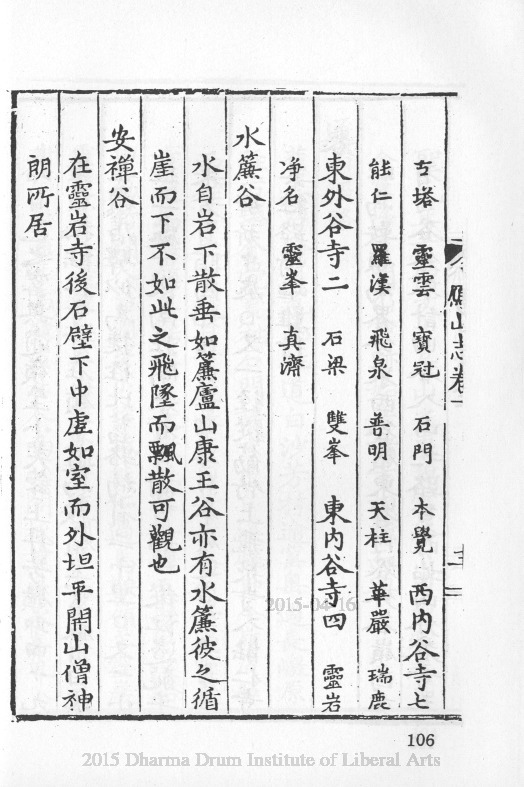 古塔 靈雲 寶冠 石門 本覺 西内谷寺七
能仁 羅漢 飛泉 普明 天柱 華嚴 瑞鹿
東外谷寺二 石梁 雙峯 東内谷寺四 靈岩
净名 靈峯 真濟
水簾谷
水自岩下散垂如簾廬山康王谷亦有水簾彼之循
崖而下不如此之飛墜而飄散可觀也
安禪谷
在靈岩寺後石壁下中虛如室而外坦平開山僧神
朗所居
鴈山志卷一
十二
2015-04-16
106
2015 Dharma Drum Institute of Liberal Arts